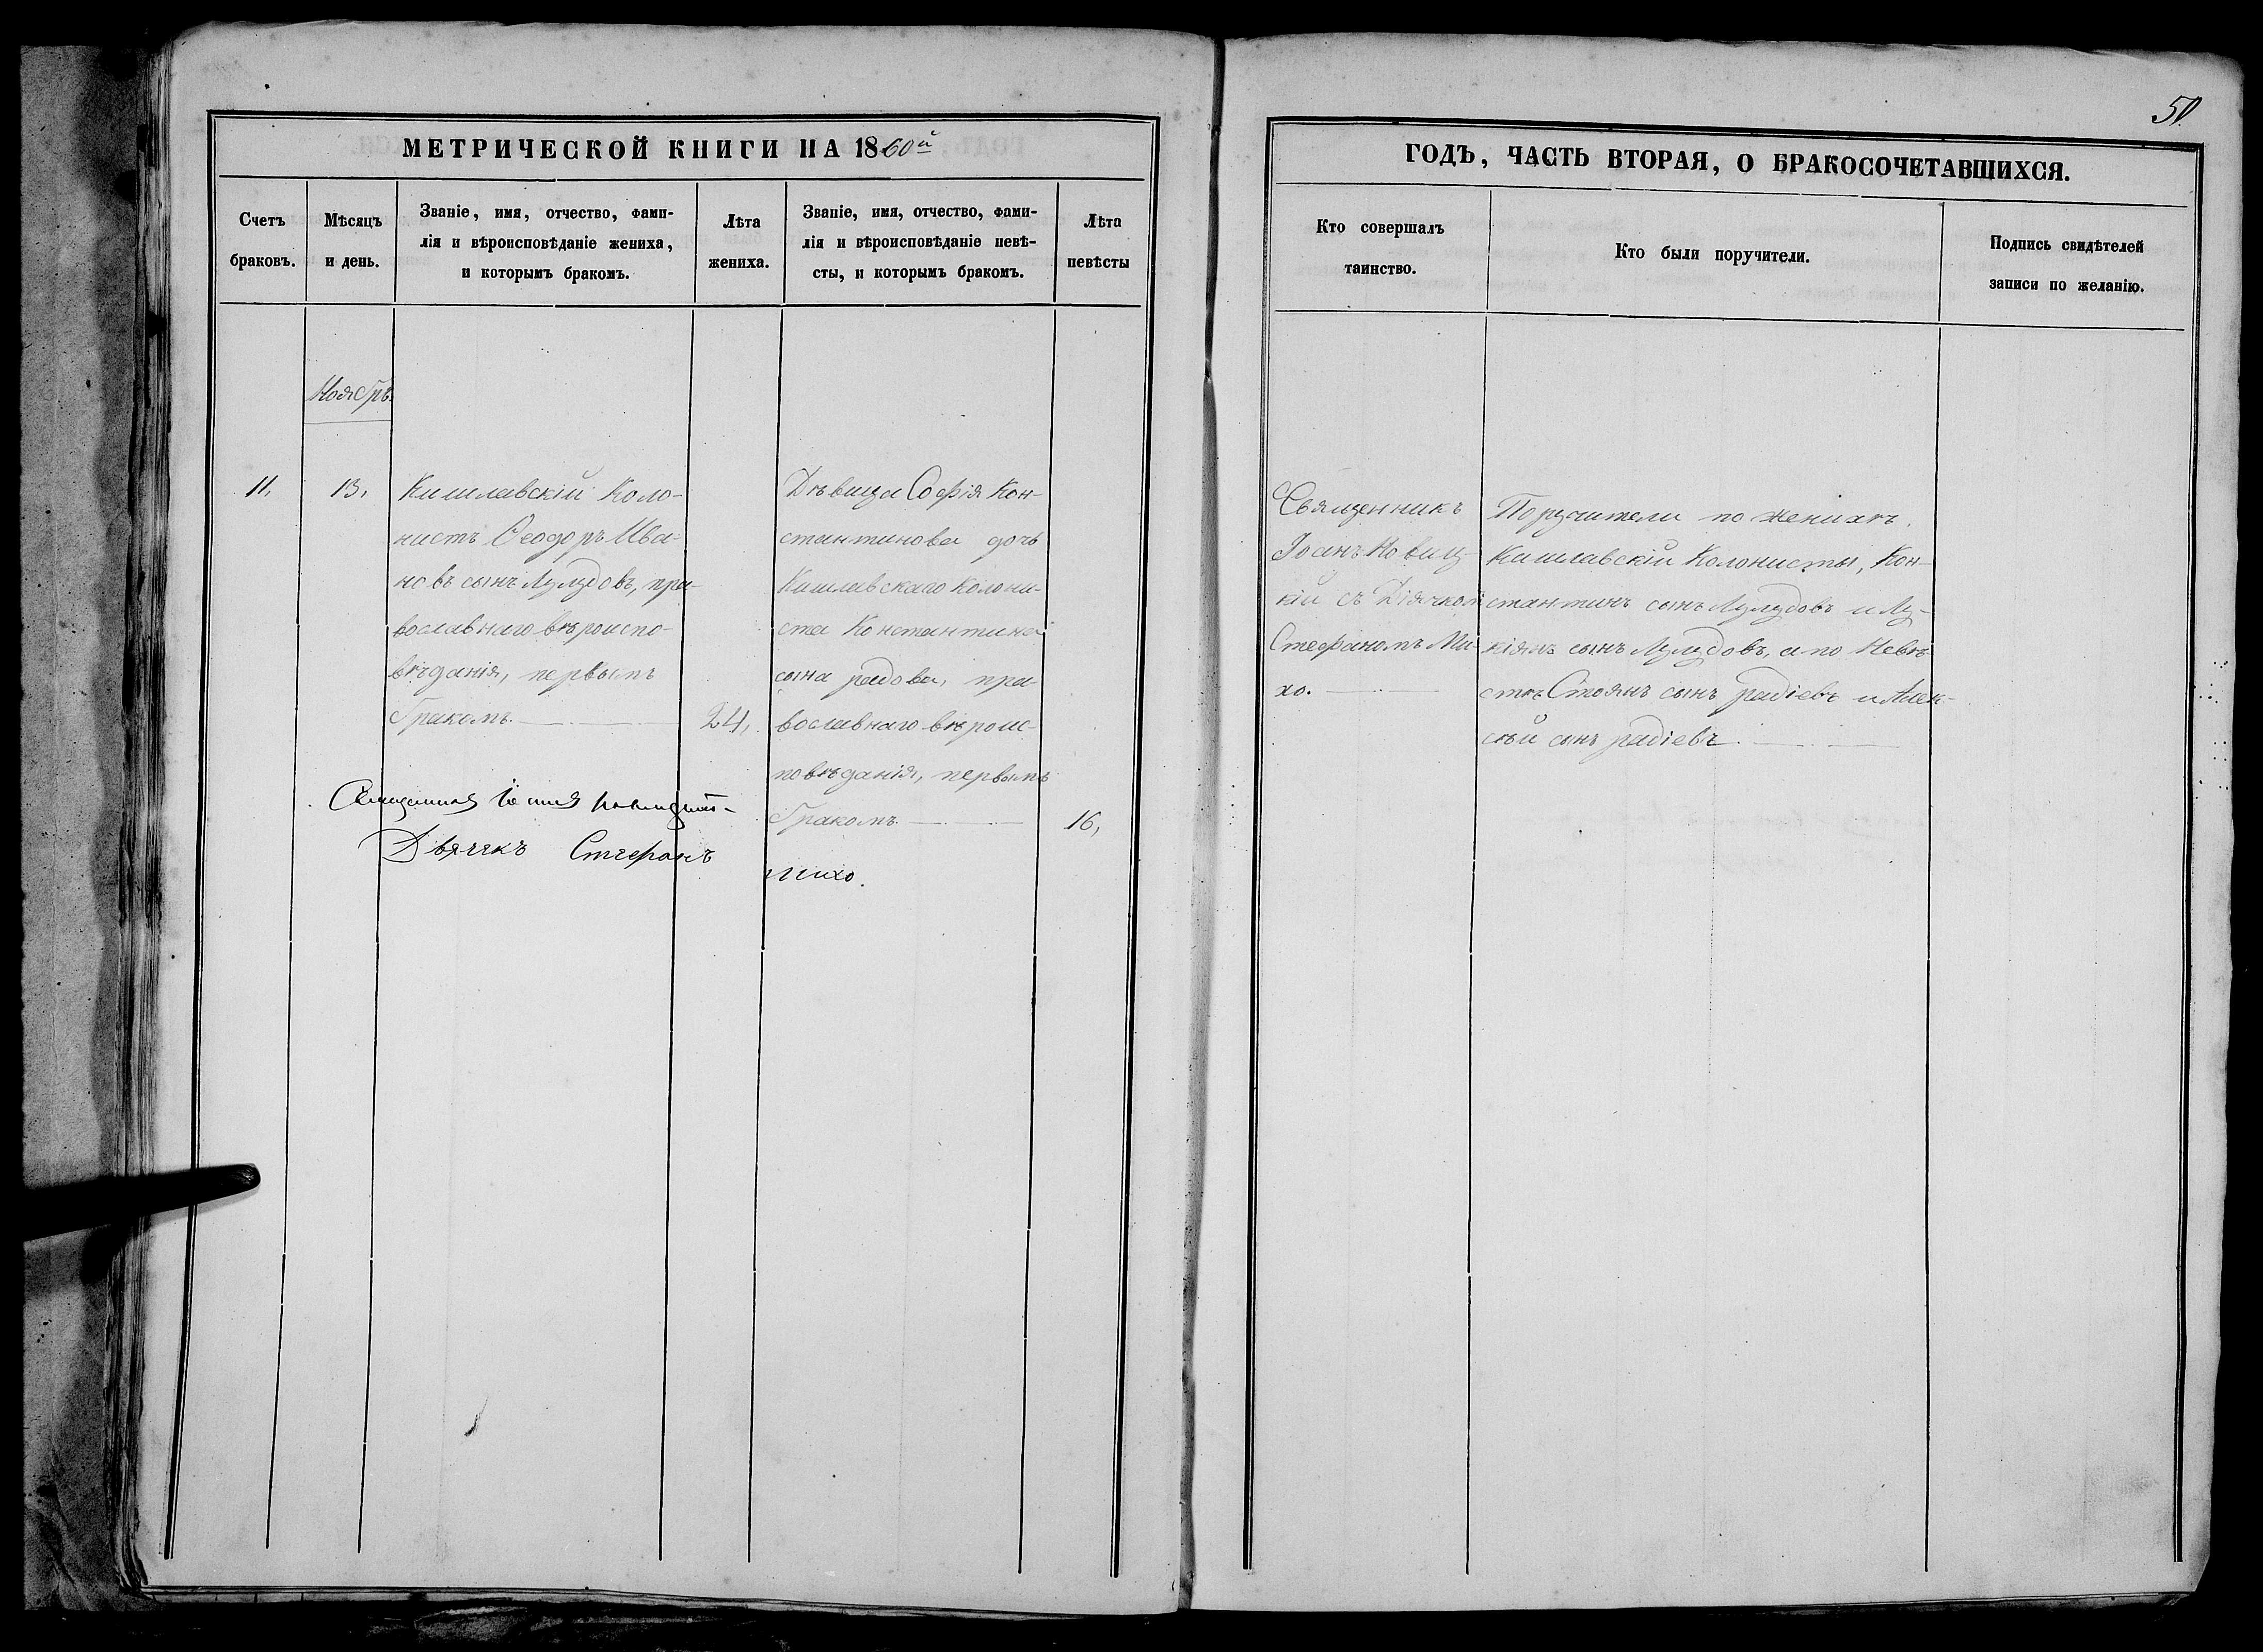 50
МЕТРИЧЕСКОЙ КНИГИ НА 1860й
ГОДЪ, ЧАСТЬ ВТОРАЯ, О БРАКОСОЧЕТАВШИХСЯ.
Счетъ
браковъ.
Мѣсяцъ
и день.
Званіе, имя, отчество, фами-
лія и вѣроисповѣданіе жениха,
и которымъ бракомъ.
Лѣта
жениха.
Званіе, имя, отчество, фами-
лія и вѣроисповѣданіе невѣ-
сты, и которымъ бракомъ.
Лѣта
невѣсты
Кто совершалъ
таинство.
Кто были поручители.
Подпись свидѣтелей
записи по желанію.
Ноябрь.
11.
13.
Кишлавскій Коло-
нистъ Ѳеодоръ Ива-
новъ сынъ Лулудовъ, пра-
вославнаго вѣроиспо-
вѣданія, первымъ
бракомъ.
24,
Дѣвица Софія Кон-
стантинова дочь
Кишлавскаго Колони-
ста Константина
сына радова, пра-
вославнаго вѣроис-
повѣданія, первымъ
бракомъ.
16,
Священникъ
Іоанъ Новиц-
кій съ Діячкомъ
Стефаномъ Ми-
хо.
Поручители по женихѣ.
Кишлавскій Колонисты, Кон-
стантинъ сынъ Лулудовъ и Лу-
кіянъ сынъ Лулудовъ, а по Невѣ-
стѣ Стоянъ сынъ радіевъ и Алек-
сѣй сынъ радіевъ.
Священникъ Іоаннъ Новицкій
Дьячекъ Стефанъ
михо.